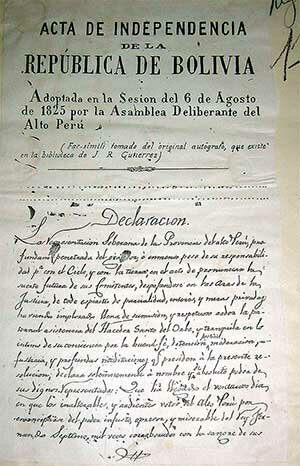 ACTA DE INDEPENDENCIA
DE LA
REPÚBLICA DE BOLIVIA
Adoptada en la Sesion del 6 de Agosto
de 1825 por la Asamblea Deliberante del
Alto Perú
(Fac-simili tomado del original autógrafo, que existe
en la biblioteca de J. R. Gutierrez)
Declaracion.
La representacion Soberana de las Provincias del alto Perú, pro
fundam.te penetrada del grandor, é inmenso peso de su responsabili
dad p.a con el Cielo, y con la tierra, en el acto de pronunciar la
suerte futura de sus Comitentes, despojandose en las Aras de la
Justicia, de todo espiritu de parcialidad, interés, y miras privadas
habiendo implorado llena de sumision, y respetuoso ardor la pa
ternal asistencia del Hacedor Santo del Orbe, y tranquila en lo
intimo de su conciencia por la buena fé, detencion, moderacion,
justicia, y profundas meditaciones que presiden á la presente re
solucion, declara solemnemente á nombre y absoluto poder de
sus dignos representados: Que ha llegado el venturoso dia
en que los inalterables, y ardientes votos del Alto Perú por
emanciparse del poder injusto, opresor, y miserable del Rey Fer
nando Septimo, mil veces corroborados con la sangre de sus